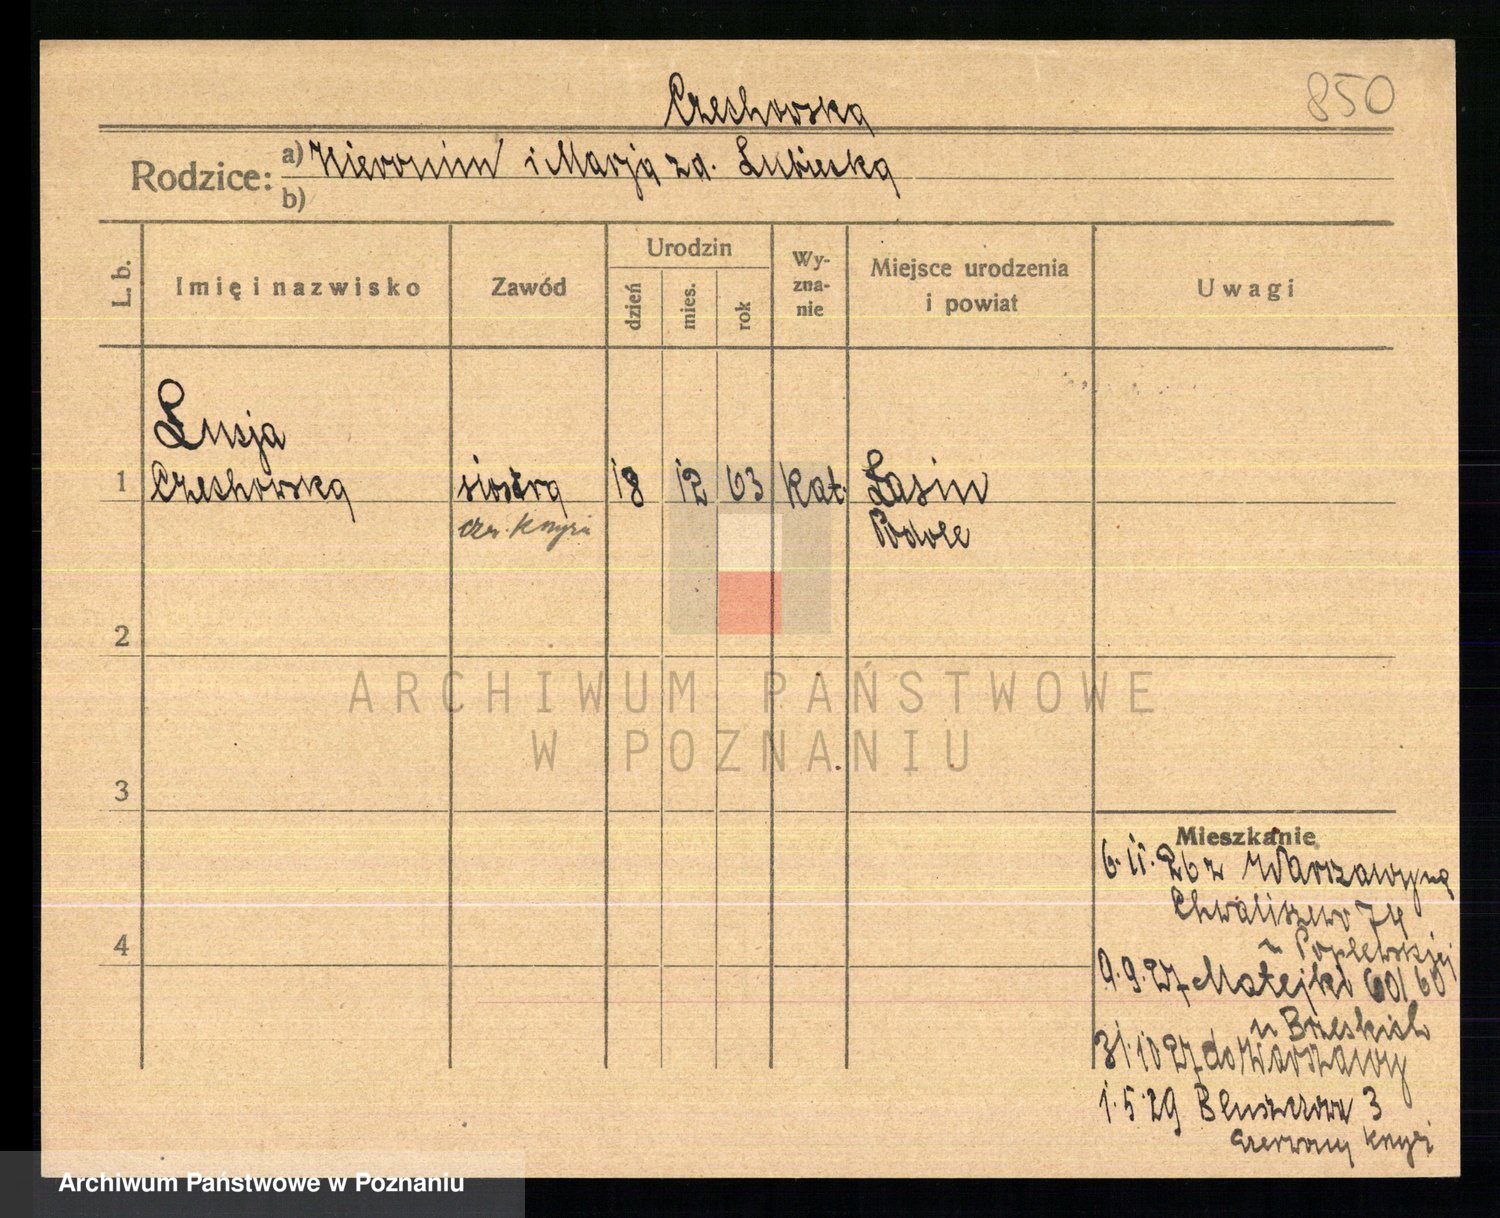 850
Czechowska
Rodzice: a) Hieronim i Marja zd. Lubieska
b)
L. b. Imię i nazwisko Zawód Urodzin dzień mies. rok Wyznanie Miejsce urodzenia i powiat Uwagi
Lusja
1 Czechowska siostra 18 12 63 kat. Łasin
czer. Krzyża Podole
2
ARCHIWUM PAŃSTWOWE
W POZNANIU
3
Mieszkanie
6.11.26 z Warszawy na
Chwaliszewo 74
u Poplewskiej
9.9.27 Matejki
u Brzeskich
31.10.27 do Warszawy
1.5.29 Bluszczowa 3
4
Czerwony Krzyż
Archiwum Państwowe w Poznaniu